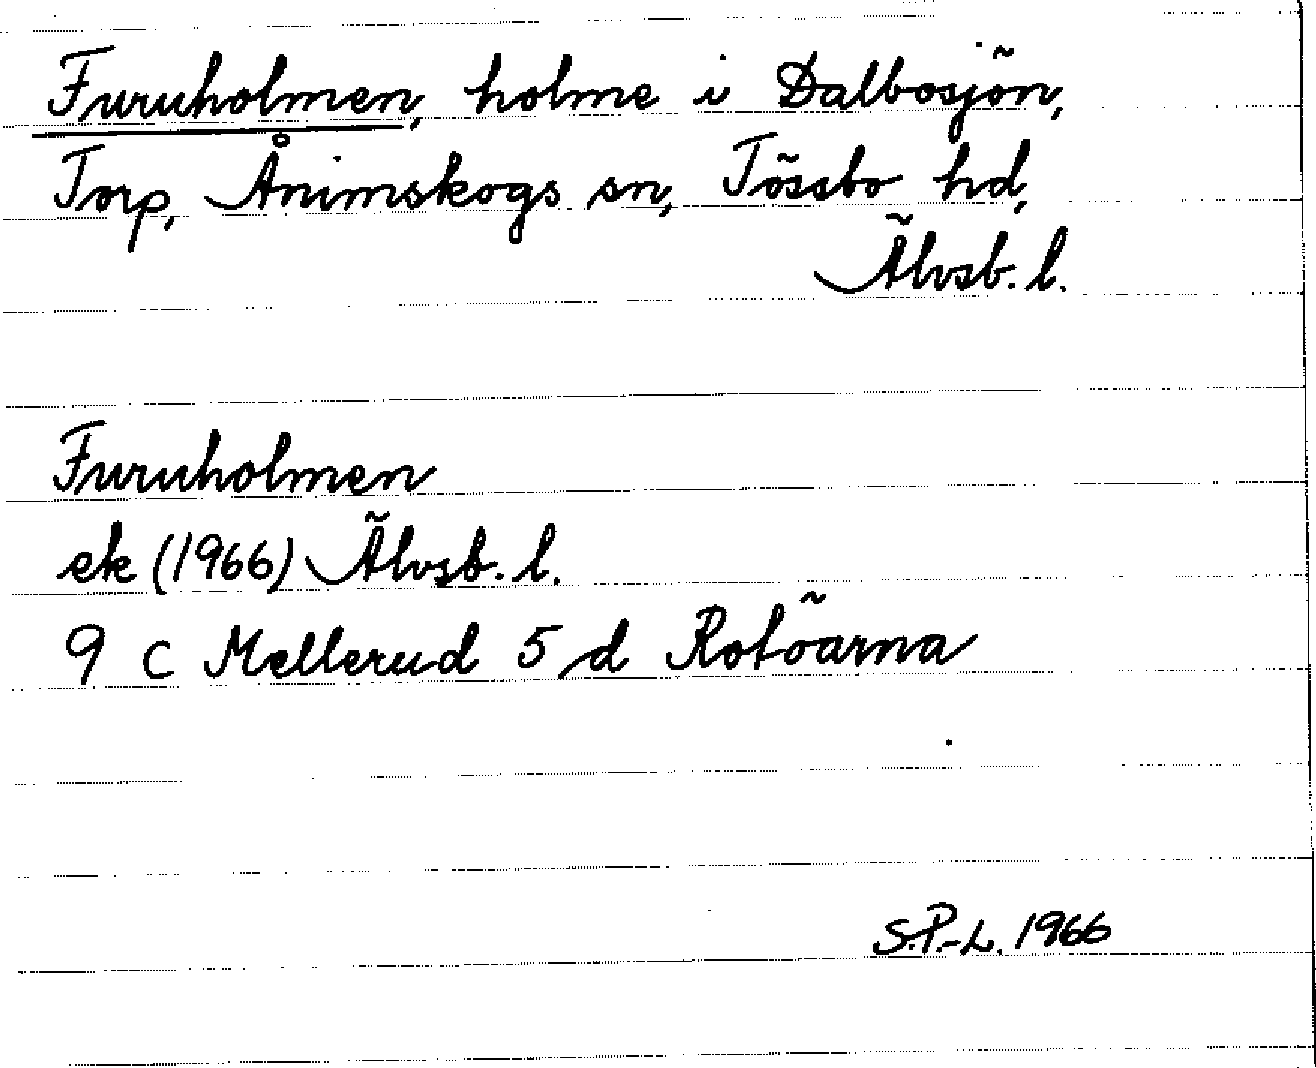 Furuholmen, holme i Dalbosjön,
Torp, Ånimskogs sn, Tössbo hd,
Älvsb. l.
Furuholmen
ek (1966) Älvsb. l.
9 C Mellerud 5 d Rotöarna
S.P.-L. 1966